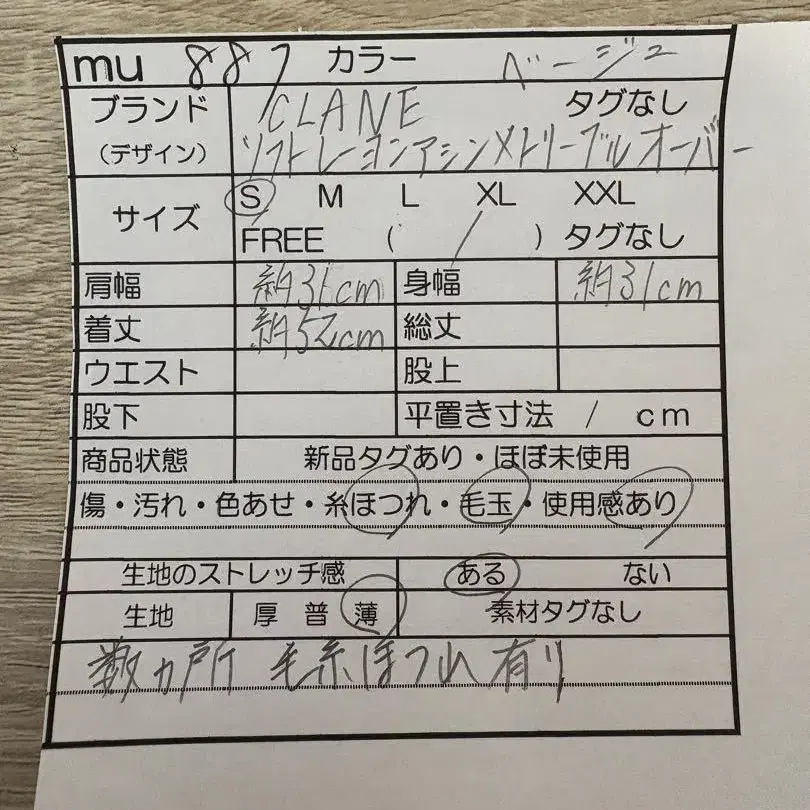 mu 887 カラー ベージュ
ブランド CLANE タグなし
(デザイン) ソフトレーヨンアシンメトリープルオーバー
サイズ S M L XL XXL
FREE ( / ) タグなし
肩幅 約31cm 身幅 約31cm
着丈 約52cm 総丈
ウエスト 股上
股下 平置き寸法 / cm
商品状態 新品タグあり・ほぼ未使用
傷・汚れ・色あせ・糸ほつれ・毛玉・使用感あり
生地のストレッチ感 ある ない
生地 厚 普 薄 素材タグなし
数ヵ所 毛糸ほつれ 有り